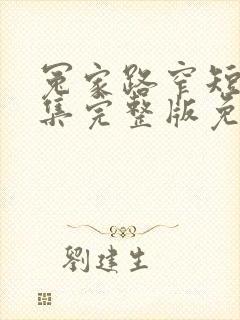 冤家路窄短
集完整版免
劉建生